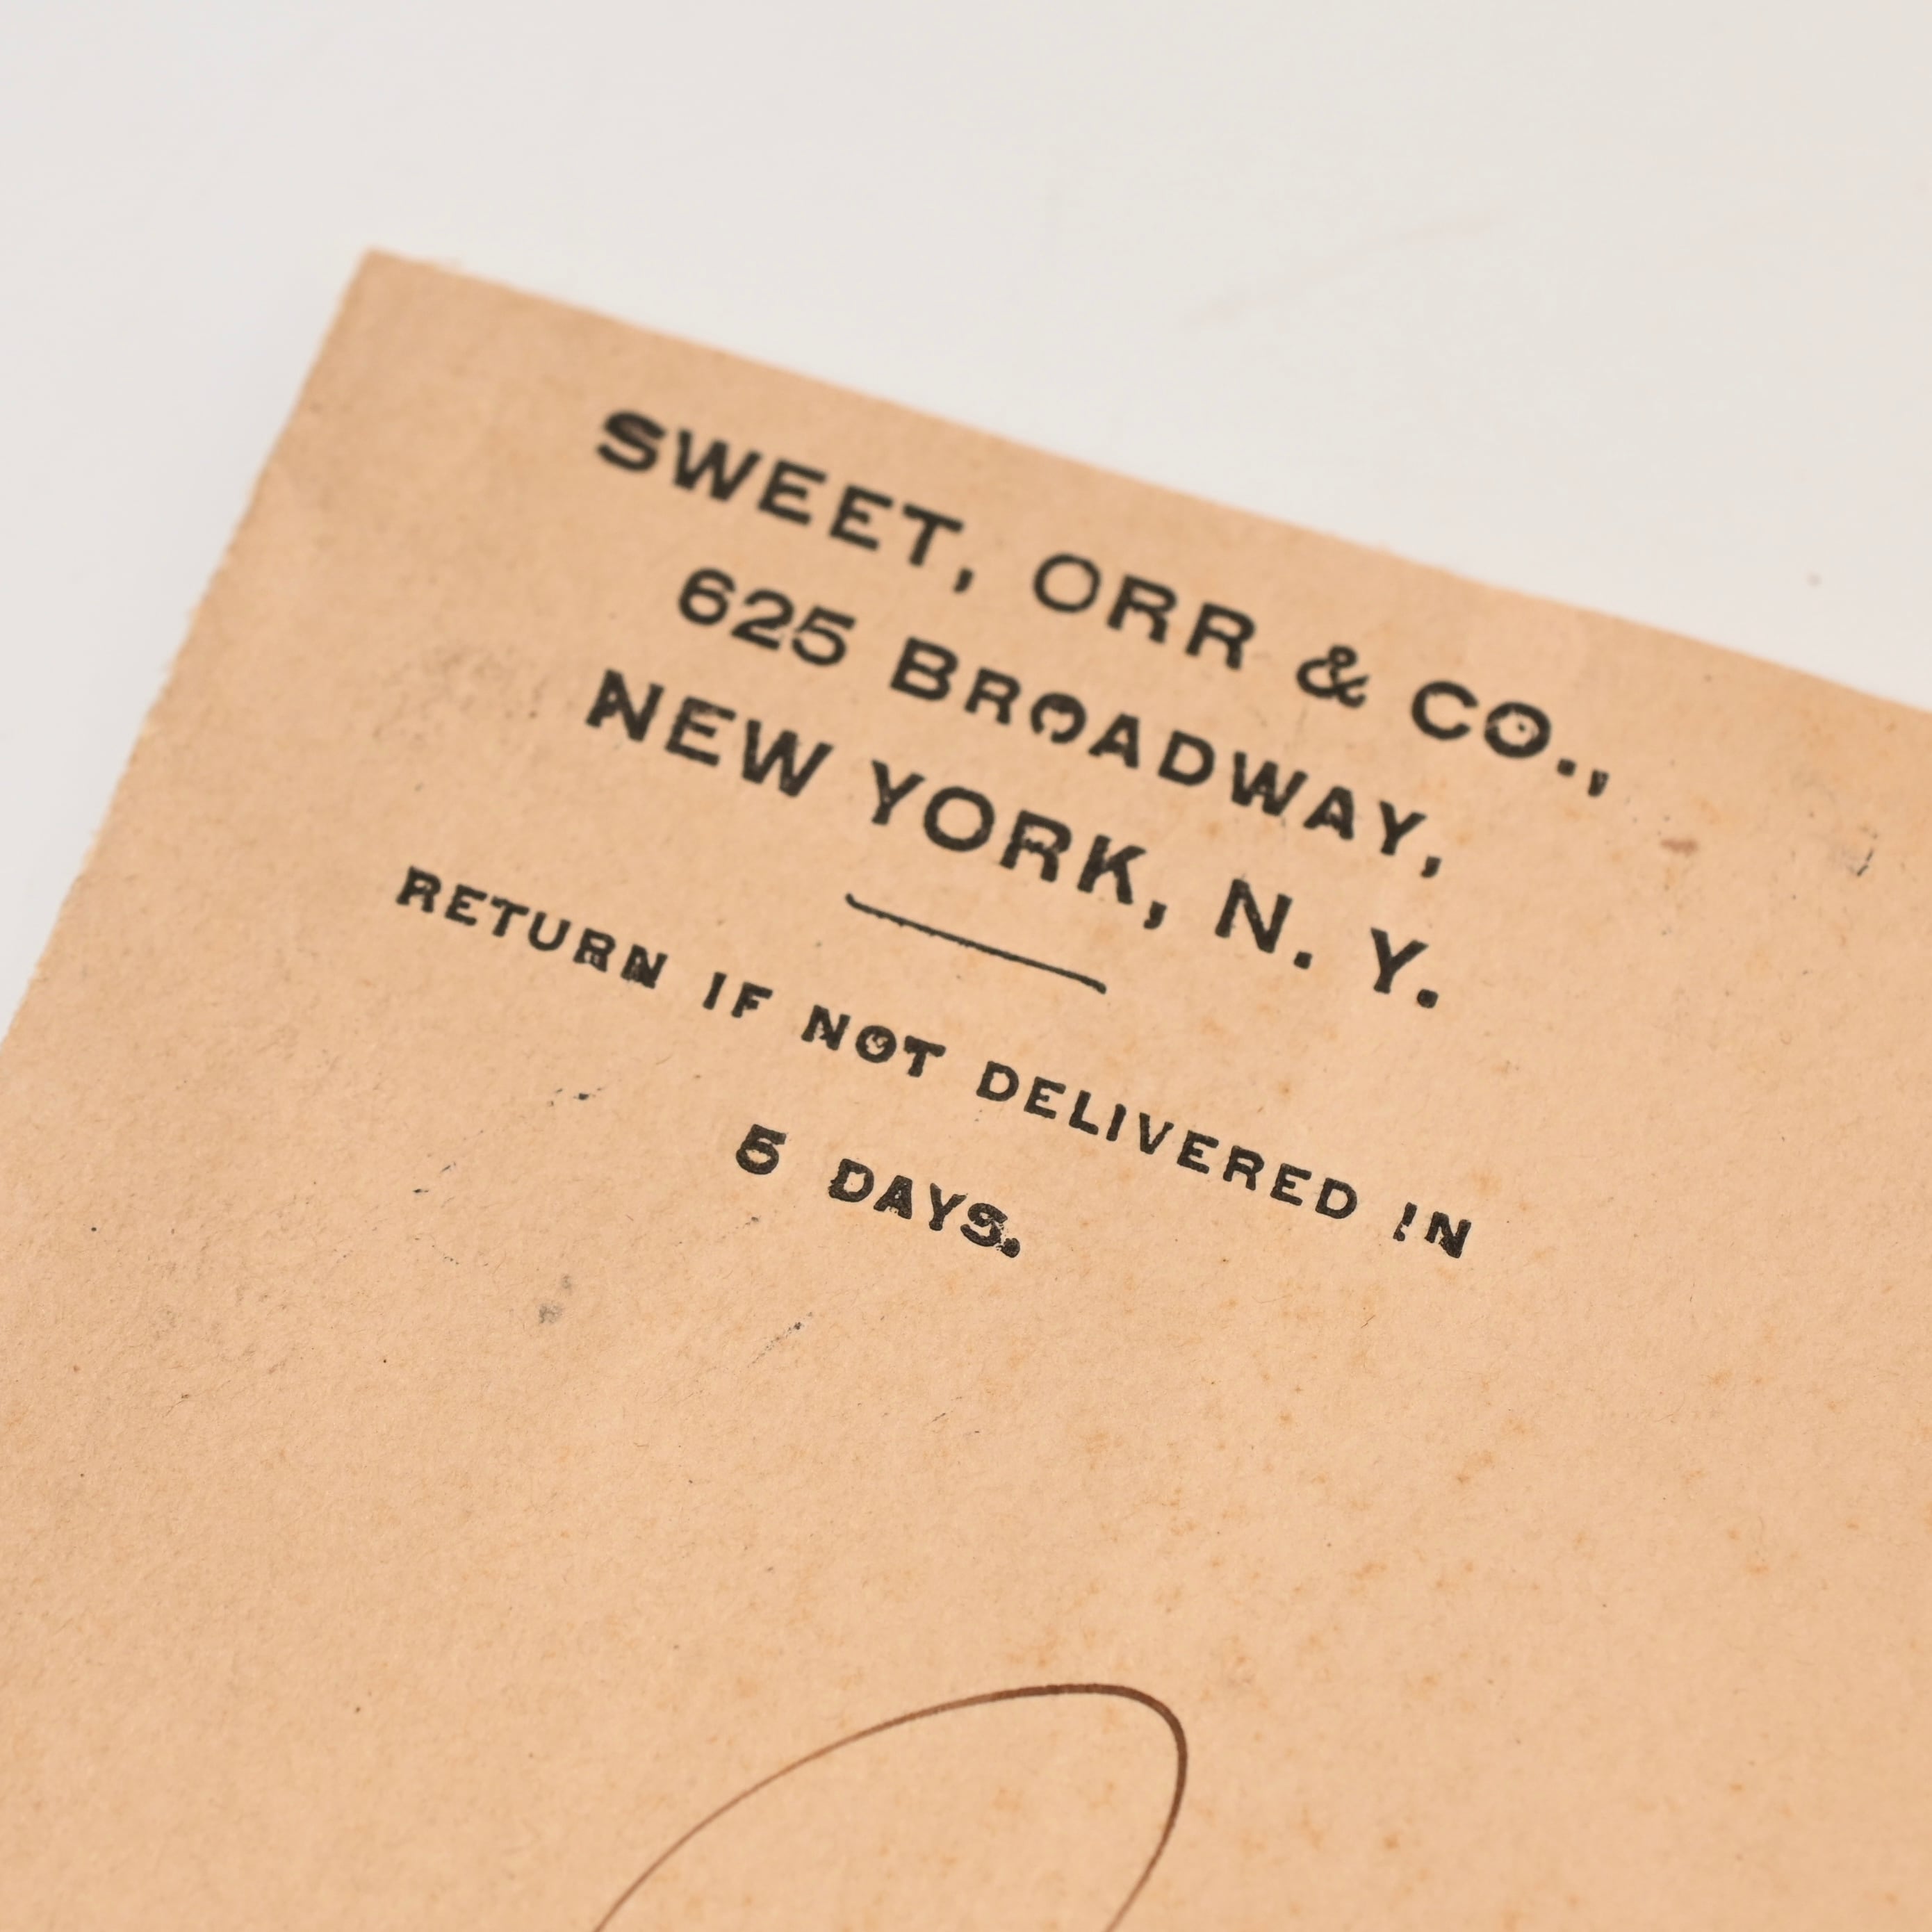 SWEET, ORR & CO.,
625 BROADWAY,
NEW YORK, N. Y.
RETURN IF NOT DELIVERED IN
5 DAYS.